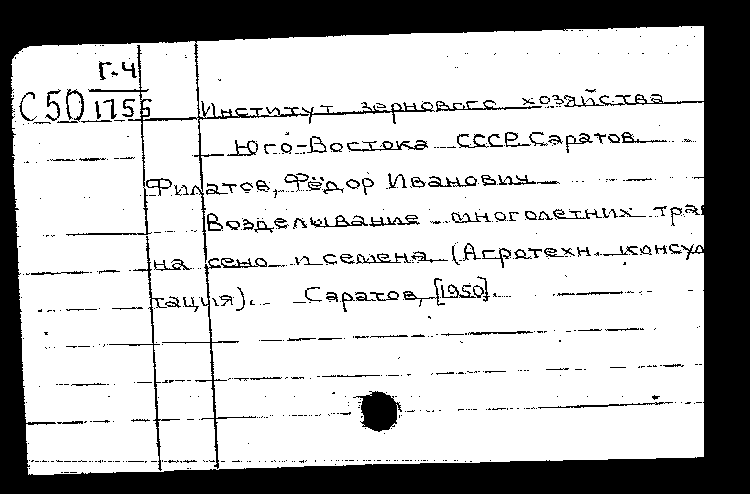 Г.4
С50 1755
Институт зернового хозяйства
Юго-Востока СССР. Саратов.
Филатов, Фёдор Иванович
Возделывание многолетних трав
на сено и семена. (Агротехн. консуль
тация). Саратов, [1950].